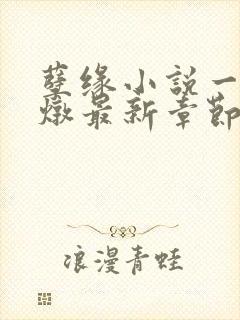 孽缘小説一
燉最新章節
浪漫青蛙